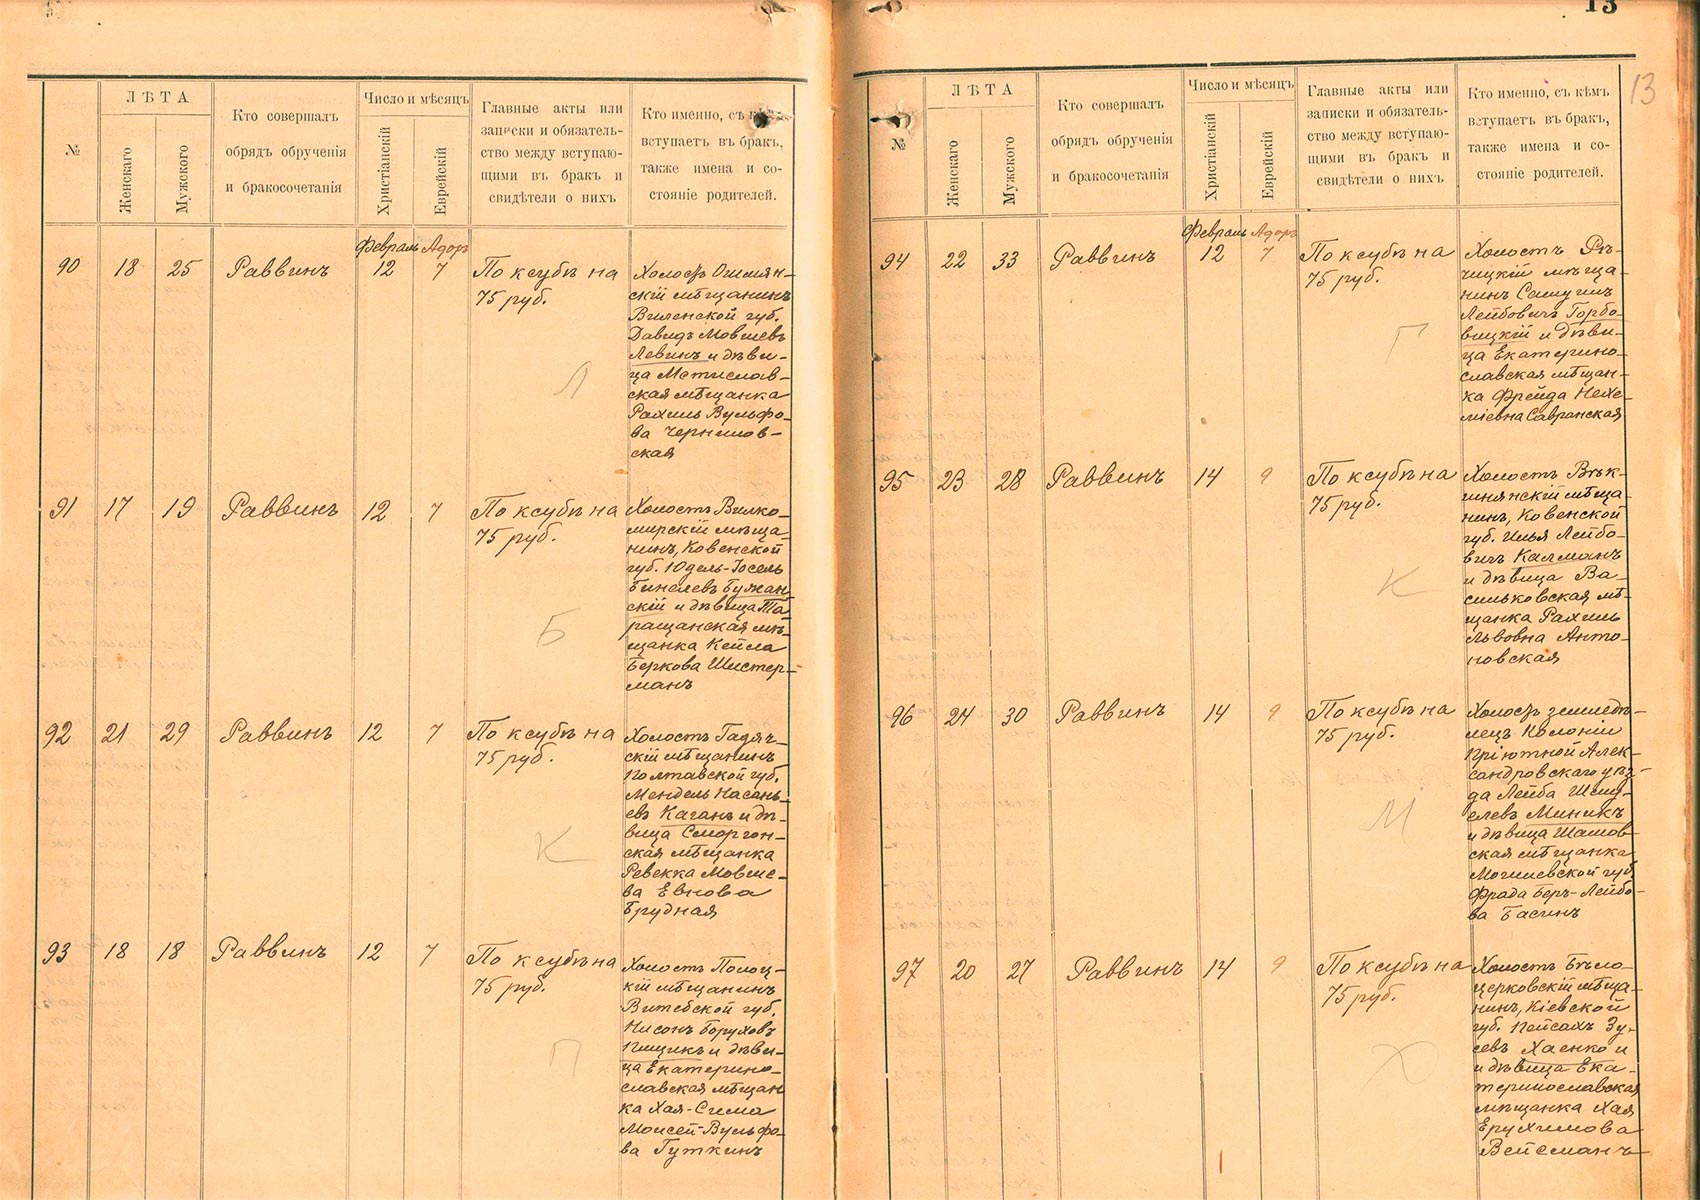 №
ЛѢТА
Женскаго
Мужского
Кто совершалъ
обрядъ обрученія
и бракосочетанія
Число и мѣсяцъ
Христіанскій
Еврейскій
Главные акты или
записки и обязатель-
ство между вступаю-
щими въ бракъ и
свидѣтели о нихъ
Кто именно, съ кѣмъ
вступаетъ въ бракъ,
также имена и со-
стояніе родителей.
Февраль Адоръ
90 18 25 Раввинъ 12 7
По ксубѣ на
75 руб.
Холостъ Ошмян-
скій мѣщанинъ
Виленской губ.
Давидъ Мовшевъ
Левинъ и дѣви-
ца Мстислав-
ская мѣщанка
Рахиль Вульфо-
ва Чернилов-
ская
Л
91 17 19 Раввинъ 12 7
По ксубѣ на
75 руб.
Холостъ Вилко-
мирскій мѣща-
нинъ, Ковенской
губ. Юдель-Іосель
Бинелевъ Бужан-
скій и дѣвица Та-
ращанская мѣ-
щанка Кейла
Беркова Шистер-
манъ
Б
92 21 29 Раввинъ 12 7
По ксубѣ на
75 руб.
Холостъ Гадяч-
скій мѣщанинъ
Полтавской губ.
Мендель Насань-
евъ Каганъ и дѣ-
вица Сморгон-
ская мѣщанка
Ревекка Мовше-
ва Евнова
Брудная
К
93 18 18 Раввинъ 12 7
По ксубѣ на
75 руб.
Холостъ Полоц-
кій мѣщанинъ
Витебской губ.
Нисонъ Боруховъ
Пищикъ и дѣви-
ца Екатерино-
славская мѣщан
ка Хая-Сима
Моисей-Вульфо-
ва Гуткинъ
П
13
13
№
ЛѢТА
Женскаго
Мужского
Кто совершалъ
обрядъ обрученія
и бракосочетанія
Число и мѣсяцъ
Христіанскій
Еврейскій
Главные акты или
записки и обязатель-
ство между вступаю-
щими въ бракъ и
свидѣтели о нихъ
Кто именно, съ кѣмъ
вступаетъ въ бракъ,
также имена и со-
стояніе родителей.
Февраль Адоръ
94 22 33 Раввинъ 12 7
По ксубѣ на
75 руб.
Холостъ Рѣ-
чицкій мѣща-
нинъ Самуилъ
Лейбовичъ Горбо-
вицкій и дѣви-
ца Екатерино-
славская мѣщан-
ка Фрейда Нехе-
міевна Савранская
Г
95 23 28 Раввинъ 14 9
По ксубѣ на
75 руб.
Холостъ Вѣк-
шнянскій мѣща-
нинъ, Ковенской
губ. Илья Лейбо-
вичъ Калманъ
и дѣвица Ва-
сильковская мѣ-
щанка Рахиль
Львовна Анто-
новская
К
96 24 30 Раввинъ 14 9
По ксубѣ на
75 руб.
Холостъ землевлѣ-
лецъ Колоніи
Пріютной Алек-
сандровскаго уѣз-
да Лейба Шму-
елевъ Миникъ
и дѣвица Шамов-
ская мѣщанка
Могилевской губ.
Фрада Беръ-Лейбо-
ва Басинъ
М
97 20 27 Раввинъ 14 9
По ксубѣ на
75 руб.
Холостъ Бѣло-
церковскій мѣща-
нинъ, Кіевской
губ. Пейсахъ Зу-
севъ Хаенко и
и дѣвица Ека-
теринославская
мѣщанка Хая
Ерухимова
Вейсманъ
Х